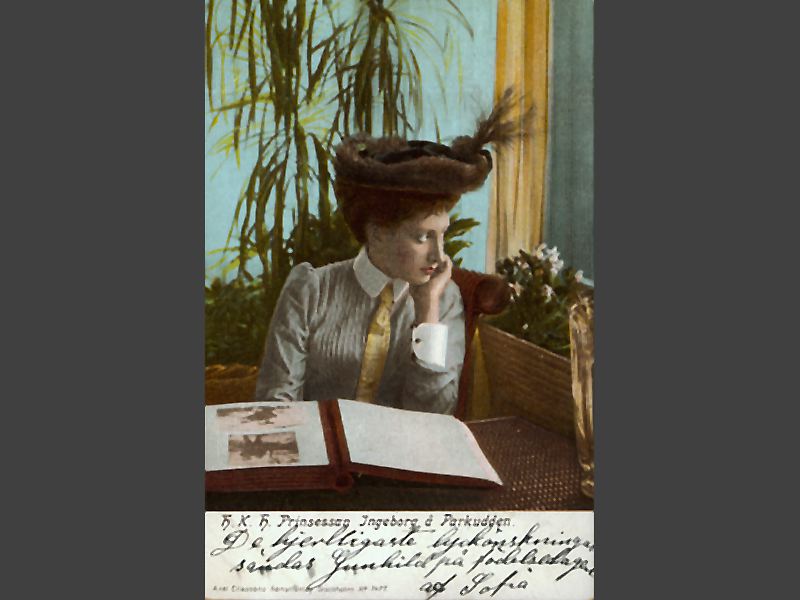 H. K. H. Prinsessan Ingeborg å Parkudden.
De hjertligaste lyckönskningar
sändas Gunhild på födelsedagen
af Sofia
Axel Eliassons Stockholm Nº 1477